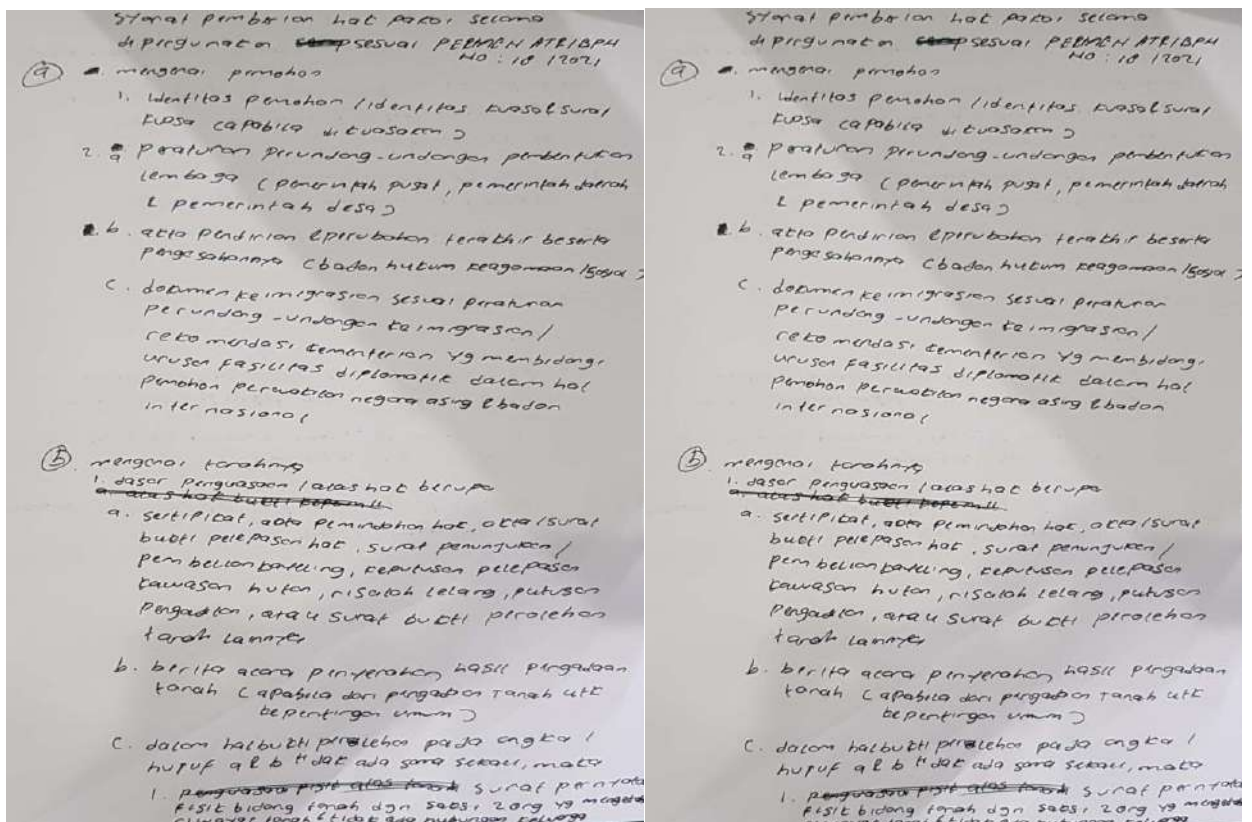 syarat pemberian hak pakai selama
dipergunakan sesuai PERMEN ATR/BPN
NO : 18 / 2021
a mengenai pemohon
1. identitas pemohon / identitas kuasa & surat
kuasa (apabila dikuasakan)
2. a peraturan perundang-undangan pembentukan
lembaga (pemerintah pusat, pemerintah daerah
& pemerintah desa)
b. akta pendirian & perubahan terakhir beserta
pengesahannya (badan hukum keagamaan / sosial)
c. dokumen keimigrasian sesuai peraturan
perundang-undangan keimigrasian /
rekomendasi kementerian yg membidangi
urusan fasilitas diplomatik dalam hal
pemohon perwakilan negara asing & badan
internasional
b. mengenai tanahnya
1. dasar penguasaan / alas hak berupa
a. alas hak bukti
a. sertipikat, akta pemindahan hak, akta / surat
bukti pelepasan hak, surat penunjukan /
pembelian kaveling, keputusan pelepasan
kawasan hutan, risalah lelang, putusan
pengadilan, atau surat bukti perolehan
tanah lainnya
b. berita acara penyerahan hasil pengadaan
tanah (apabila dari pengadaan tanah utk
kepentingan umum)
c. dalam hal bukti perolehan pada angka 1
huruf a & b tidak ada sama sekali, maka
1. penguasaan fisik atas tanah surat
fisik bidang tanah dgn saksi 2 org yg
tanah & tidak ada hubungan keluarga
syarat pemberian hak pakai selama
dipergunakan sesuai PERMEN ATR/BPN
NO : 18 / 2021
a mengenai pemohon
1. identitas pemohon / identitas kuasa & surat
kuasa (apabila dikuasakan)
2. a peraturan perundang-undangan pembentukan
lembaga (pemerintah pusat, pemerintah daerah
& pemerintah desa)
b. akta pendirian & perubahan terakhir beserta
pengesahannya (badan hukum keagamaan / sosial)
c. dokumen keimigrasian sesuai peraturan
perundang-undangan keimigrasian /
rekomendasi kementerian yg membidangi
urusan fasilitas diplomatik dalam hal
pemohon perwakilan negara asing & badan
internasional
b. mengenai tanahnya
1. dasar penguasaan / alas hak berupa
a. alas hak bukti
a. sertipikat, akta pemindahan hak, akta / surat
bukti pelepasan hak, surat penunjukan /
pembelian kaveling, keputusan pelepasan
kawasan hutan, risalah lelang, putusan
pengadilan, atau surat bukti perolehan
tanah lainnya
b. berita acara penyerahan hasil pengadaan
tanah (apabila dari pengadaan tanah utk
kepentingan umum)
c. dalam hal bukti perolehan pada angka 1
huruf a & b tidak ada sama sekali, maka
1. penguasaan fisik atas tanah surat
fisik bidang tanah dgn saksi 2 org yg
tanah & tidak ada hubungan keluarga